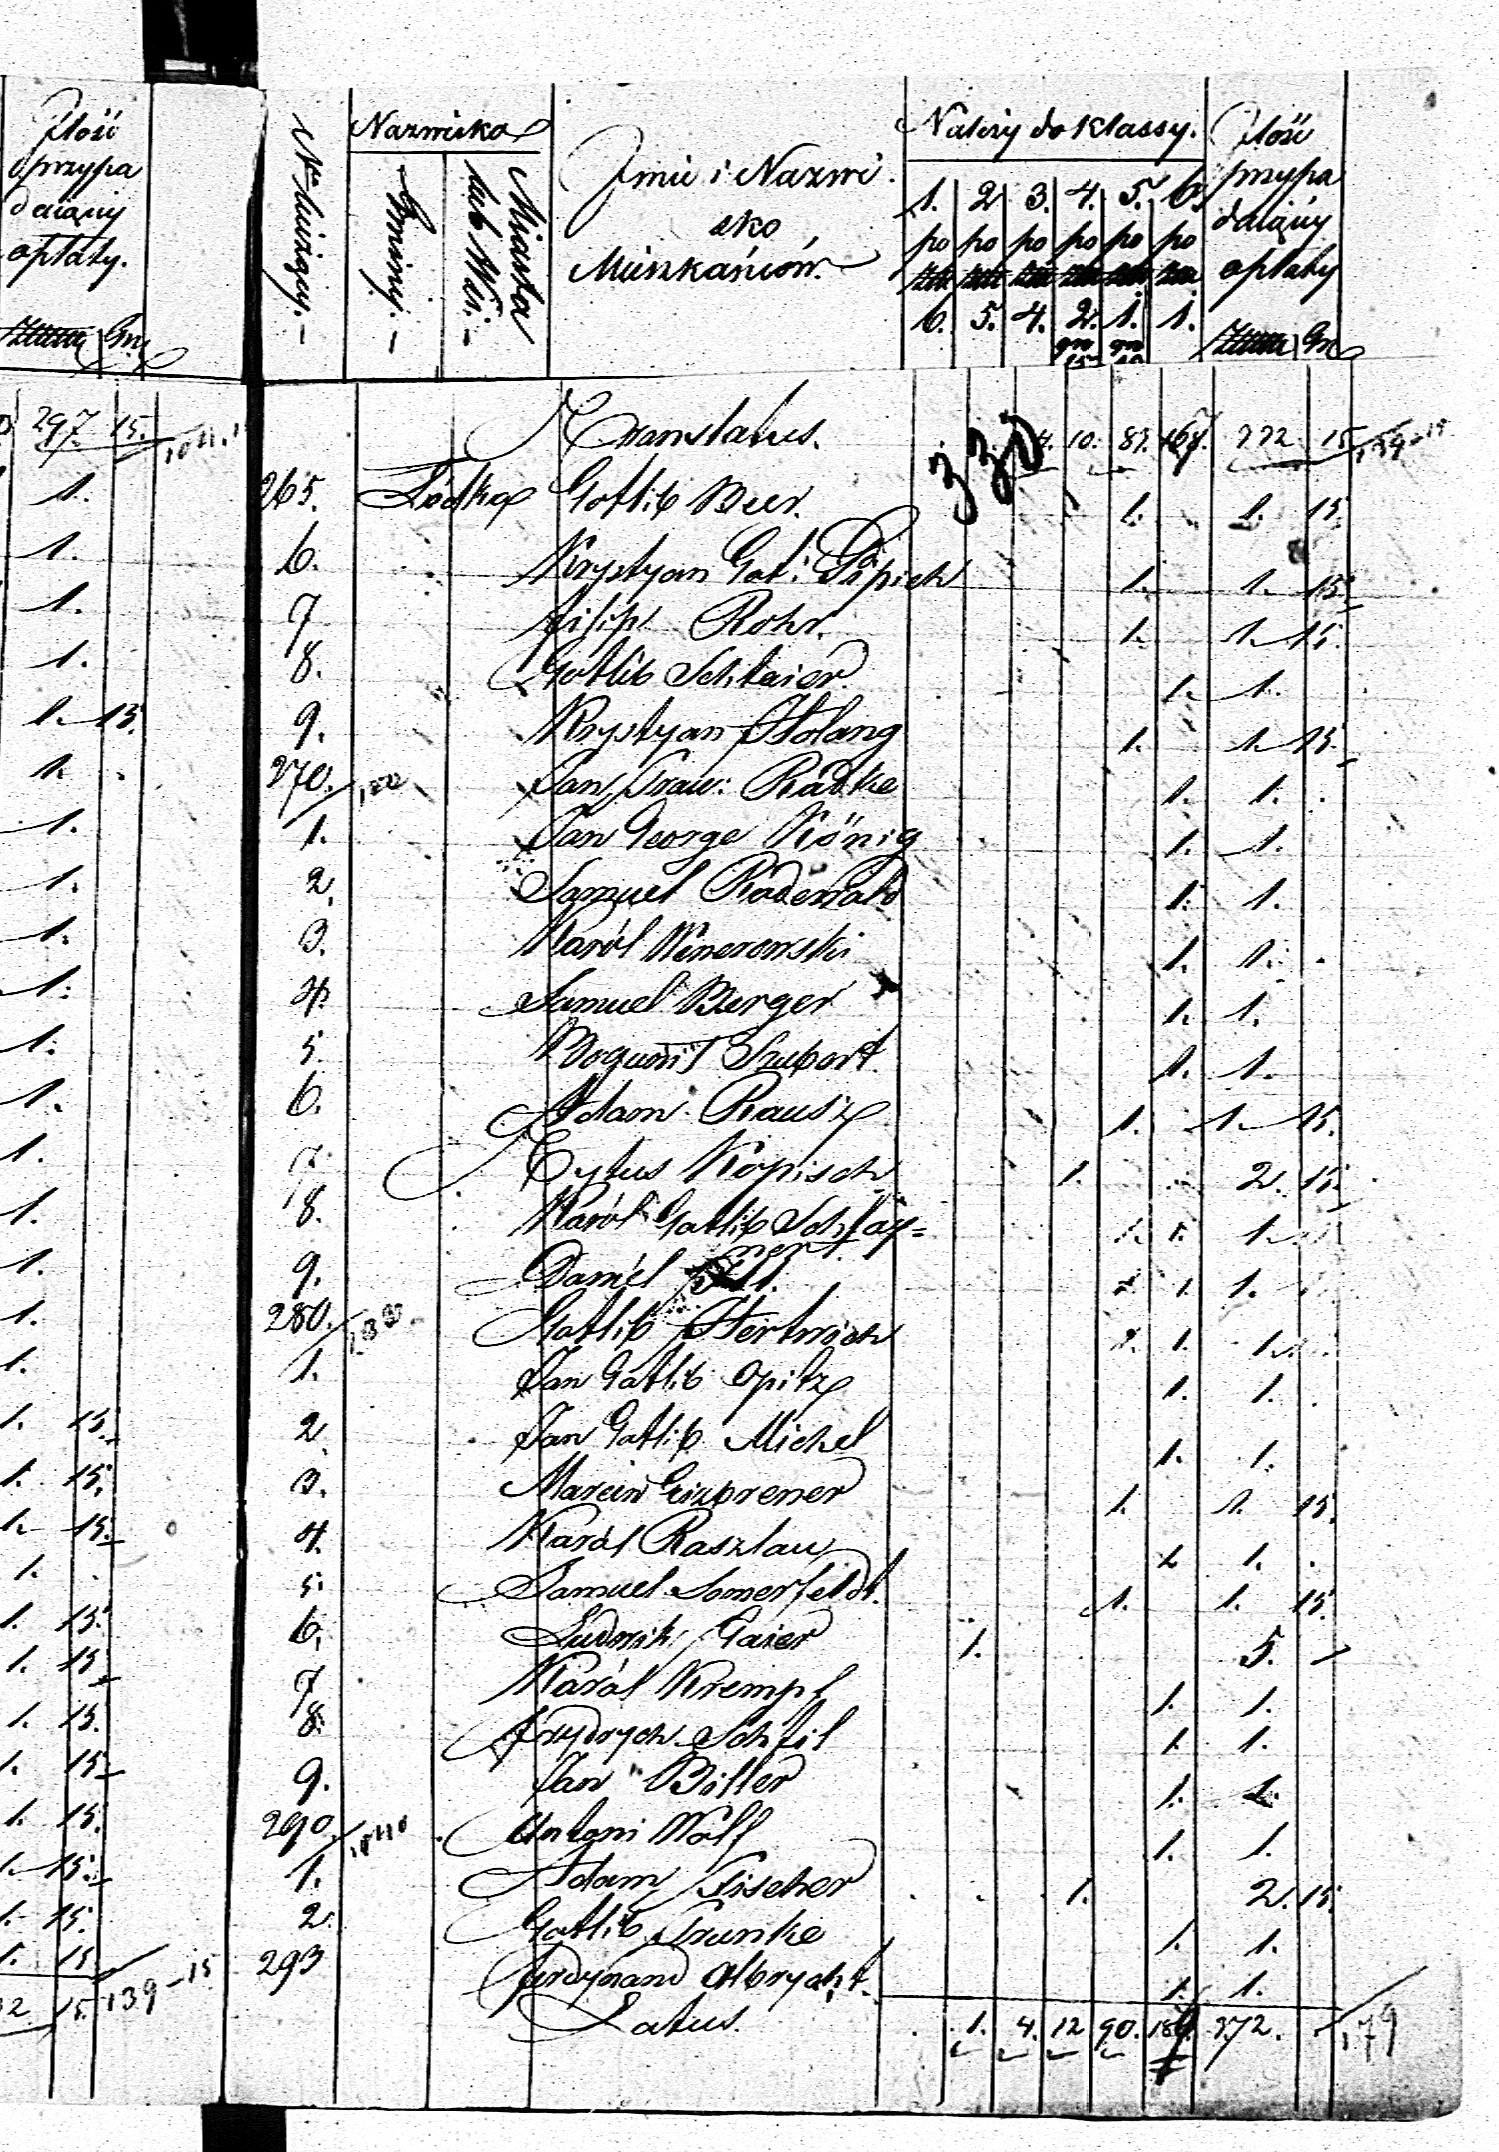 Ilość
przypa
daiący
opłaty.
Gr.
297. 15.
1.
1.
1.
1.
1. 15.
1.
1.
1.
1.
1.
1.
1.
1.
1.
1.
1.
1.
1. 15.
1. 15.
1. 15.
1.
1. 15.
1. 15.
1. 15.
1. 15.
1. 15.
1. 15.
1. 15.
1. 15.
15. 139-15
Nr bieżący.
Nazwisko
Gminy.
Miasta lub Wsi.
Imie i Nazwi
sko
Mieszkańców.
Należy do klassy.
1. 2 3. 4. 5. 6.
po po po po po po
6. 5. 4. 2. 1. 1.
gr gr
15
Ilość
przypa
daiący
opłaty
Gr
Transtatus. 330 4. 10. 81. 167. 15
265. Łódka Gottlib Beer. 1. 1. 15.
6. Krystyan Got: Pipich 1. 1. 15.
7 Filip Rohr. 1. 1. 15.
8. Gottlib Schtaier 1. 1.
9. Krystyan Holang 1. 1. 15.
270. Jan Traw: Radke 1. 1.
1. Jan George König 1. 1.
2. Samuel Radewald 1. 1.
3. Karól Winerowski 1. 1.
4. Samuel Berger 1. 1.
5. Bogumił Szubert. 1. 1.
6. Adam Rausz 1. 1. 15.
7. Tytus Kopisch 1. 2. 15.
8. Karól Gotlib Schlay=
nert. 1. 1.
9. Daniel 1. 1.
280. Gotlib Hertwich 1. 1.
1. Jan Gotlib Opitz 1. 1.
2. Jan Gotlib Michel 1. 1.
3. Marcin Eizbrener 1. 1. 15.
4. Karól Raszlau 1. 1.
5. Samuel Somerfeldt. 1. 1. 15.
6. Ludwik Gaier 1. 5.
7 Karól Krempf 1. 1.
8. Frydrych Schfil 1. 1.
9. Jan Bitter 1. 1.
290. Antoni Wolf 1. 1.
1. Adam Fischer 1. 2. 15.
2. Gotlib Trunke 1. 1.
293 Ferdynand Olbrycht. 1. 1.
Latus. 1. 4. 12 90. 372. 179